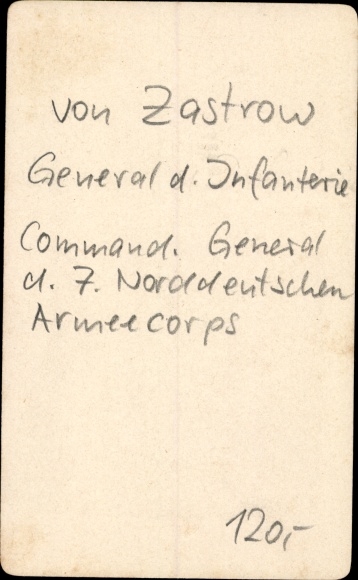 von Zastrow
General d. Infanterie
Command. General
d. 7. Norddeutschen
Armeecorps
120,-